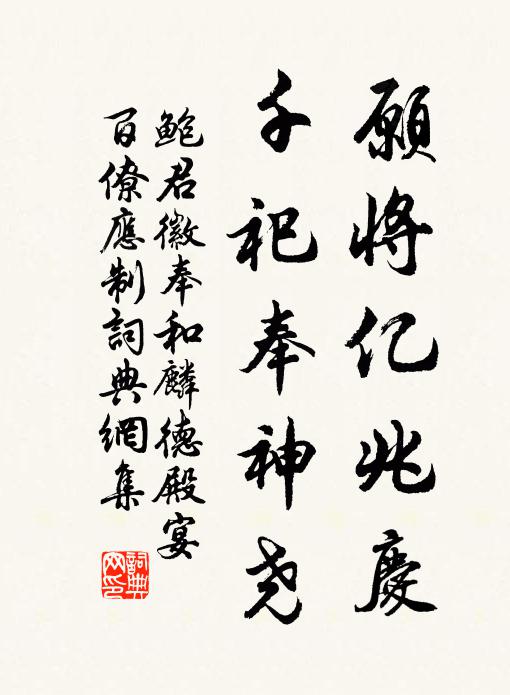 願將亿兆慶
千祀奉神尧
鲍君徽奉和麟德殿宴
百僚應制詞典網集
詞典網印